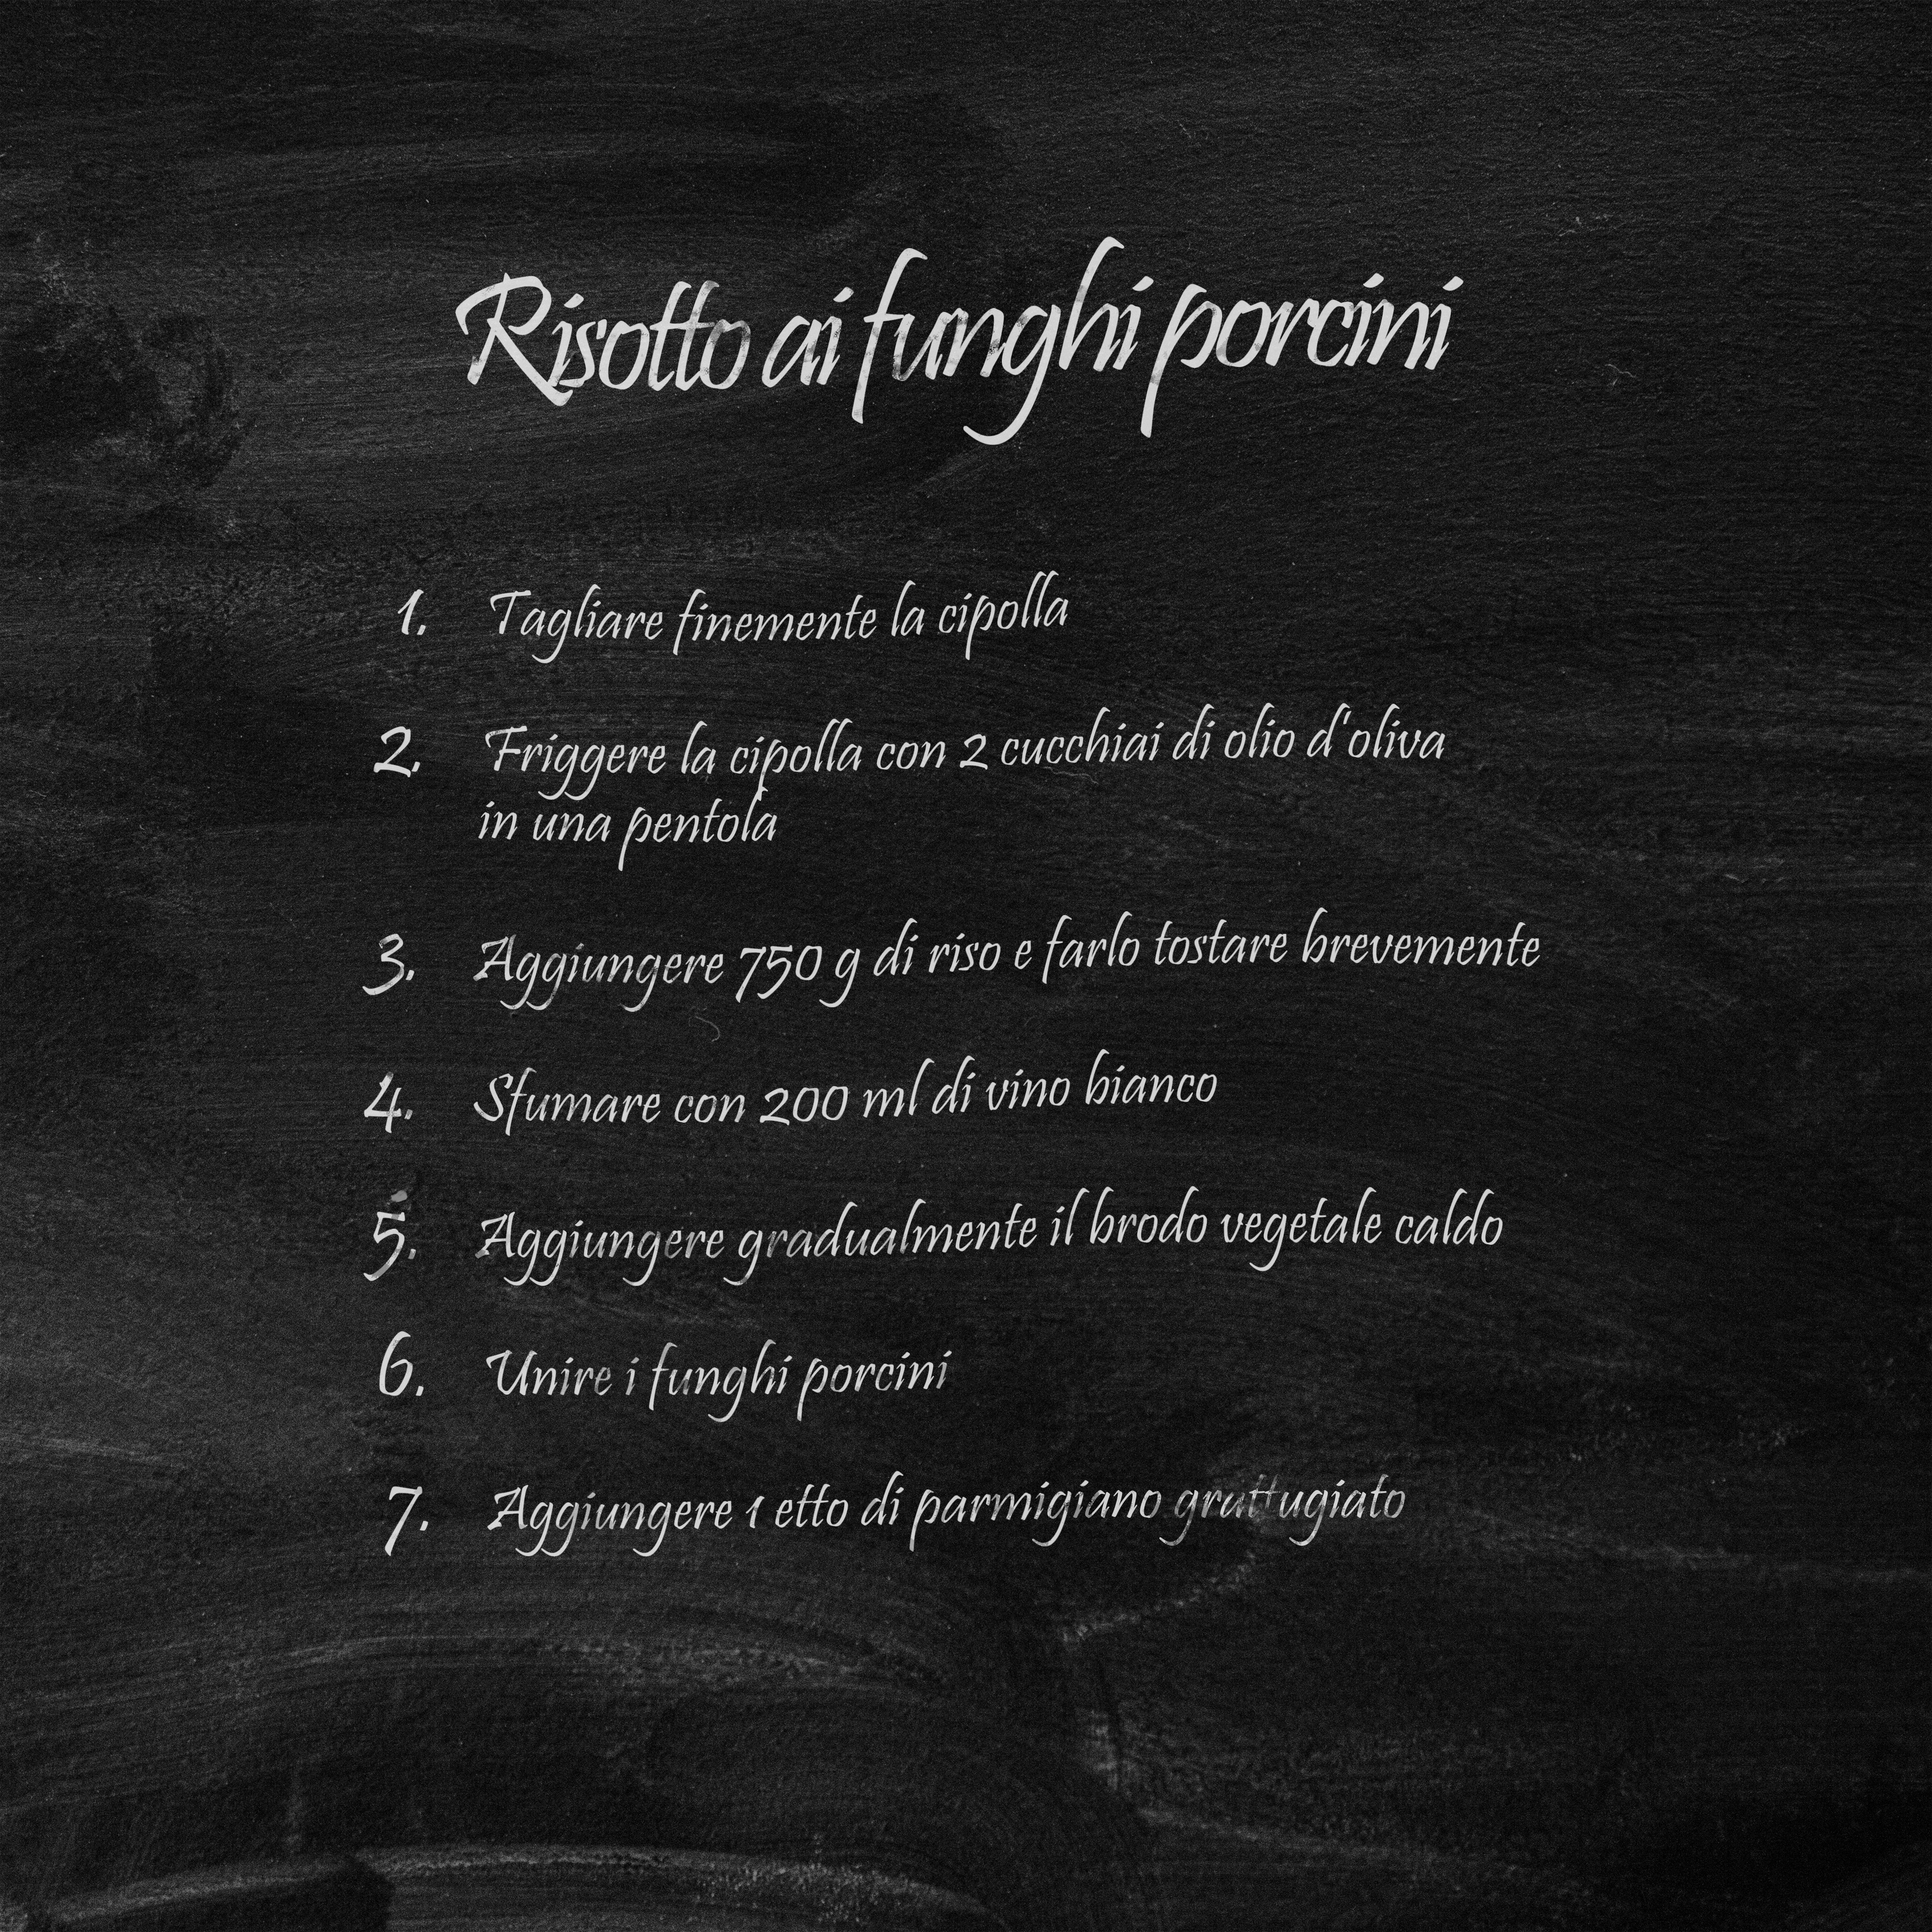 Risotto ai funghi porcini
1. Tagliare finemente la cipolla
2. Friggere la cipolla con 2 cucchiai di olio d'oliva
in una pentola
3. Aggiungere 750 g di riso e farlo tostare brevemente
4. Sfumare con 200 ml di vino bianco
5. Aggiungere gradualmente il brodo vegetale caldo
6. Unire i funghi porcini
7. Aggiungere 1 etto di parmigiano grattugiato